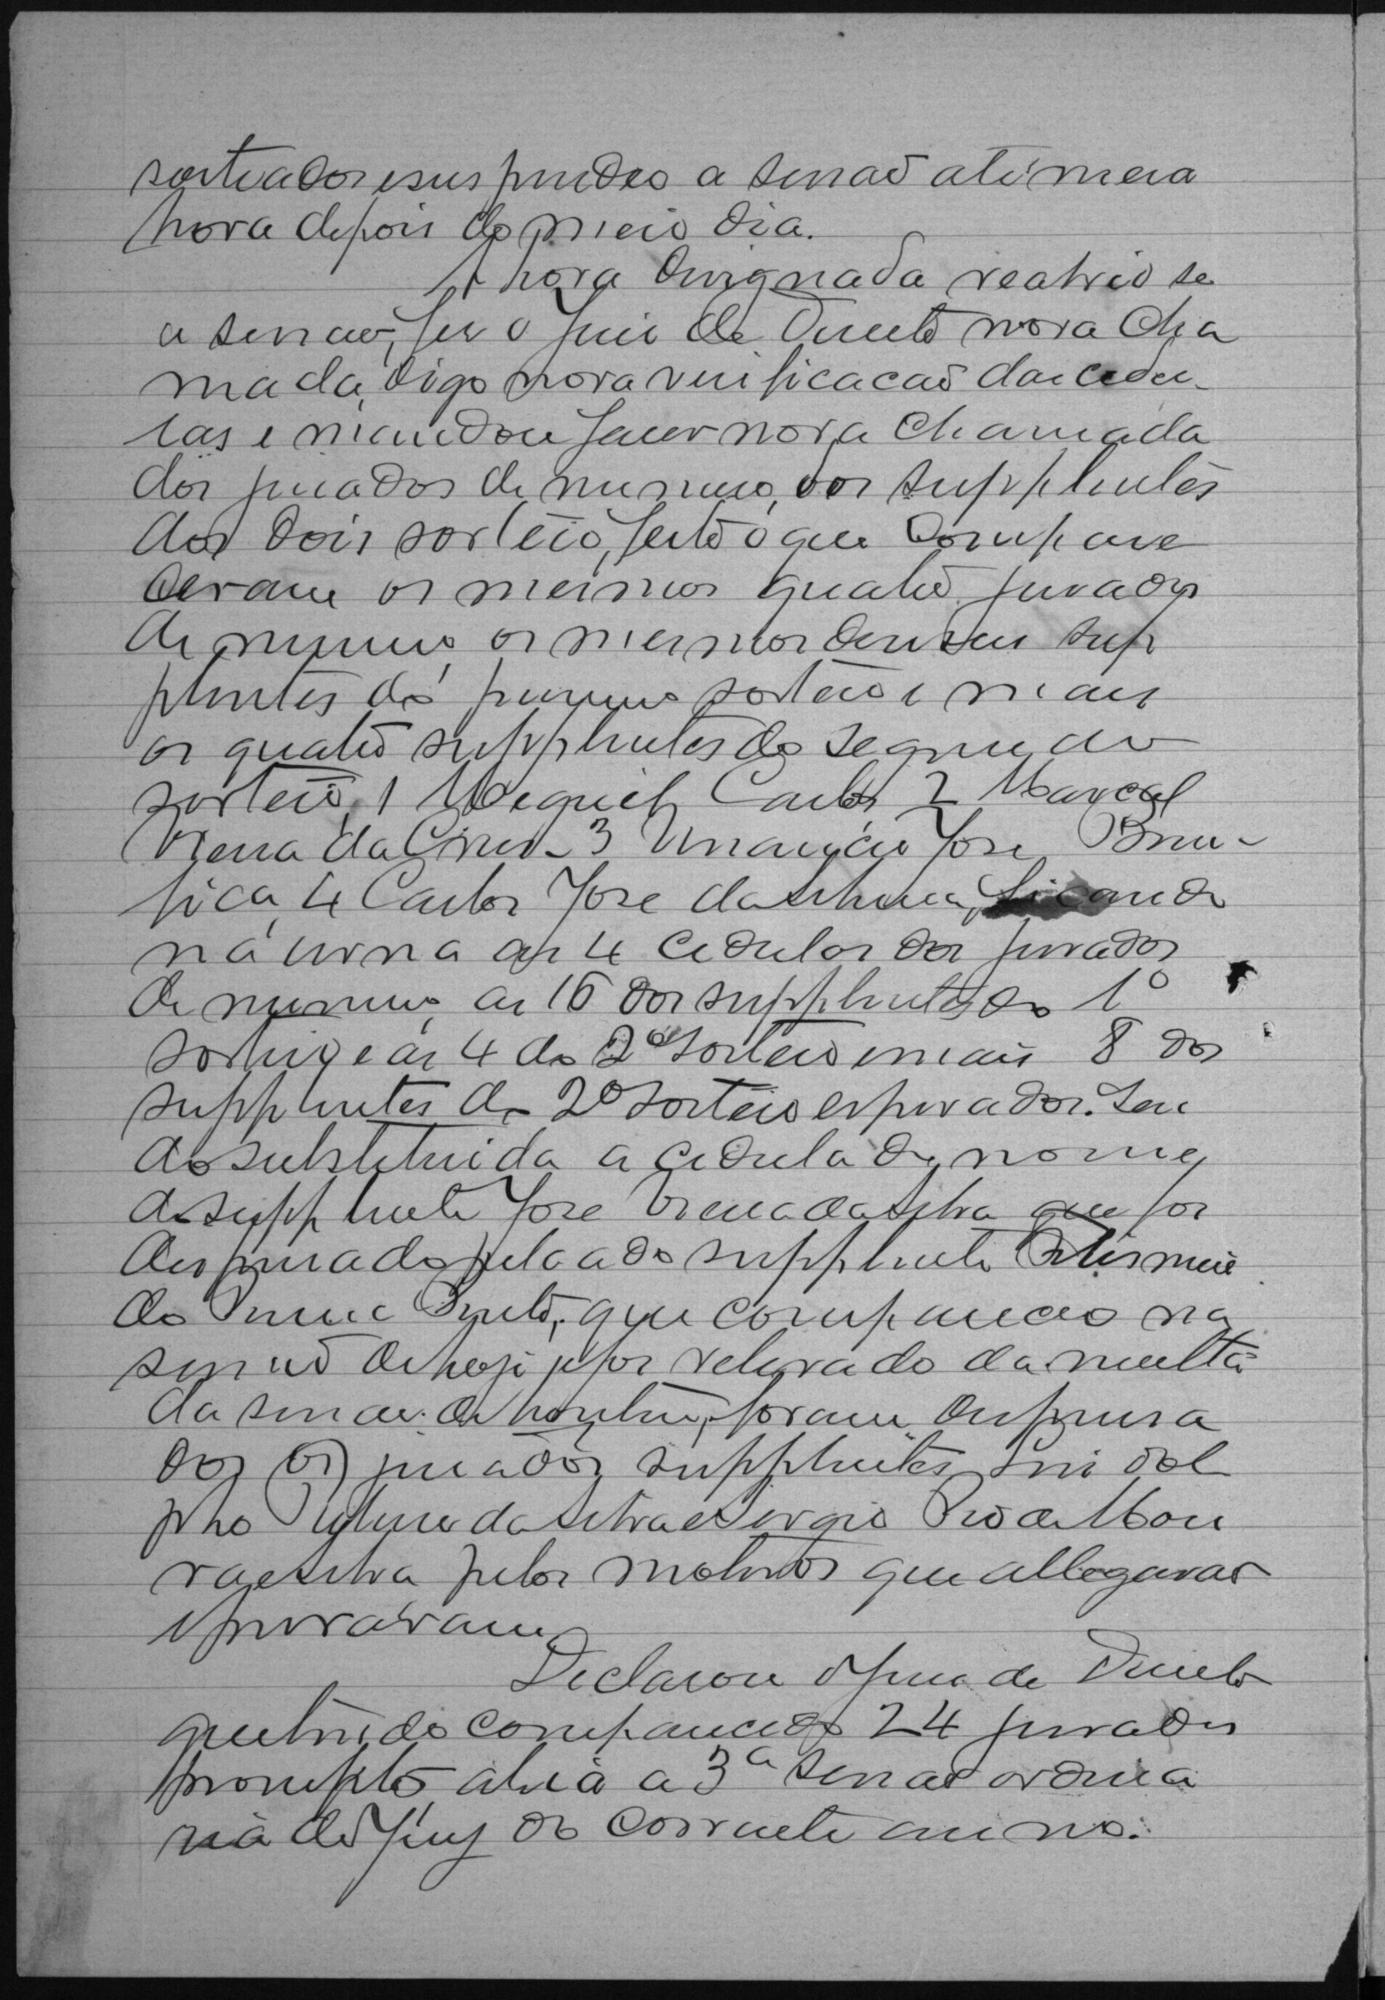 sorteados e suspendeo a sessão até meia
hora depois do meio dia.
A hora designada reabrio se
a sessão, fez o Juiz de Direito nova cha
mada, digo nova verificacaõ das cedu-
las e mandou fazer nova chamada
dos jurados de numero, dos supplentes
dos dois sorteio, feito o que compare
ceram os mesmos quatro jurados
de numero, os mesmos supp
plentes do primeiro sorteio e mais
os quatro supplentes do segundo
sorteio, 1 Miguel Carlos 2 Marçal
Vieira da Cruz - 3 José
4 Carlos José da Silveira, ficando
na urna as 4 cedulas dos jurados
de numero, as 16 dos supplentes do 1º
sorteio e as 4 do 2º sorteio e mais 8 dos
supplentes do 2º sorteio esperados. Sen
do substituida a cedula do nome
do supplente José Vieira da Silva que foi
despensado pela a do supplente
do Pinto, que compareceo na
sessão de hoje e foi relevado da multa
da sessão de hontem, foram dispensa
dos os jurados supplentes
pho da Silva e Sergio Pio de Mou
ra e Silva pelos motivos que allegaram
e provaram
Declarou o Juiz de Direito
que tendo comparecido 24 jurados
promptos, abria a 3ª sessão ordina
ria do Jury do corrente anno.